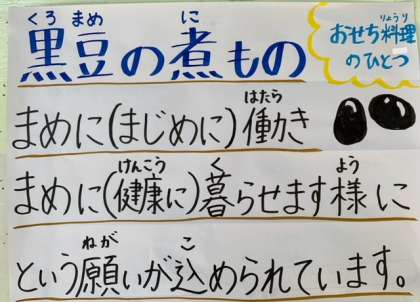 くろ まめ に
黒豆の煮もの
おせち料理
りょうり
のひとつ
はたら
まめに(まじめに)働き
けんこう く よう
まめに(健康に)暮らせます様に
ねが こ
という願いが込められています。